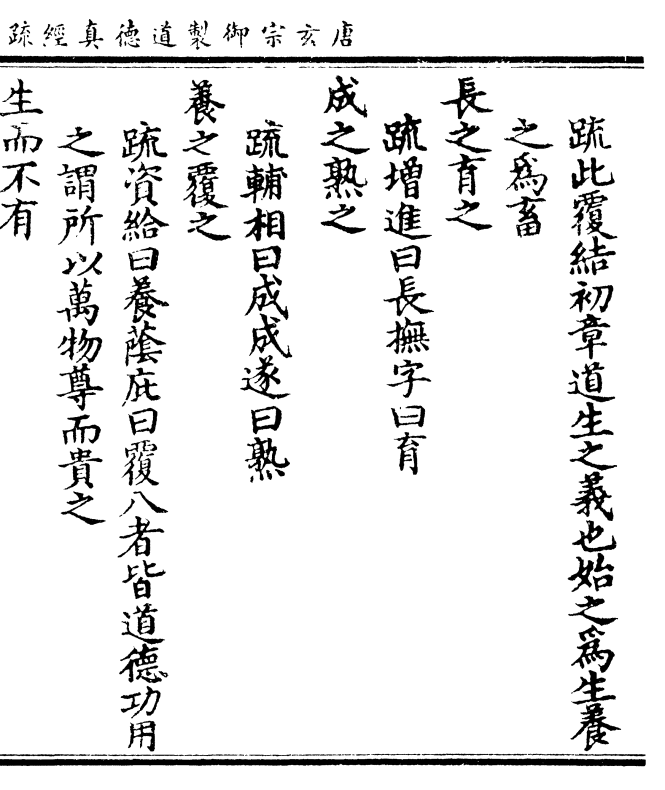 唐玄宗御製道德真經疏
疏此覆結初章道生之義也始之爲生養
之爲畜
長之育之
疏增進曰長撫字曰育
成之熟之
疏輔相曰成成遂曰熟
養之覆之
疏資給曰養蔭庇曰覆八者皆道德功用
之謂所以萬物尊而貴之
生而不有